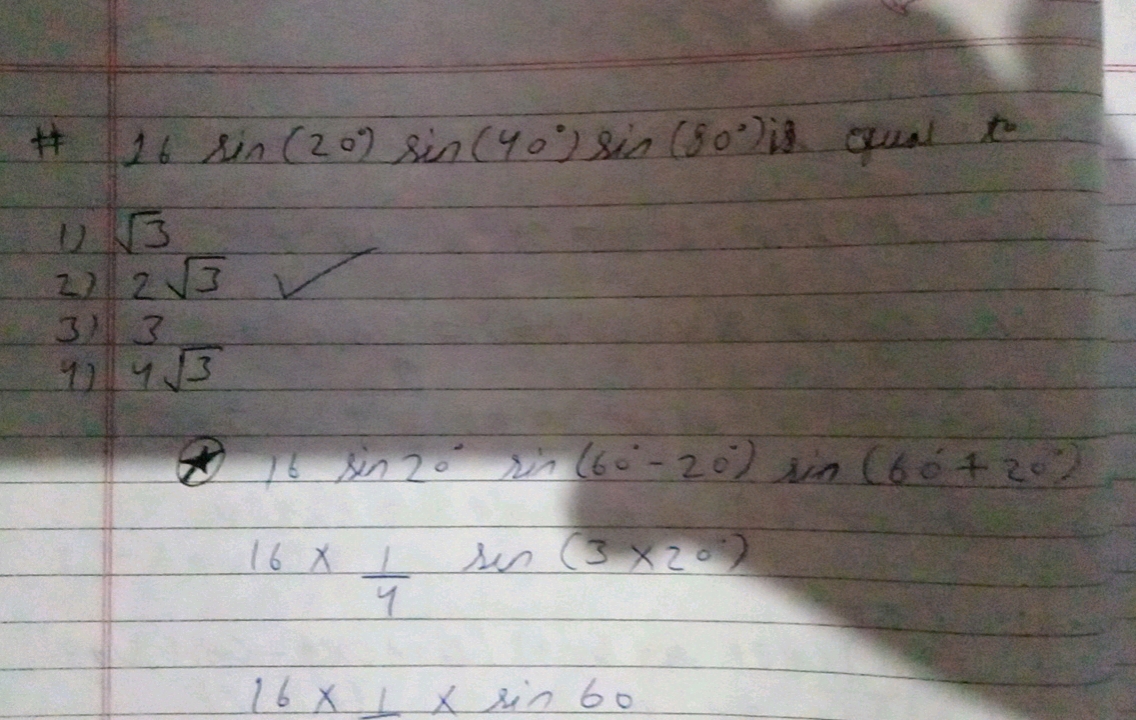 # 16 sin(20°) sin(40°) sin(80°) is equal to
1) √3
2) 2√3 ✓
3) 3
4) 4√3
★ 16 sin20° sin(60°-20°) sin(60°+20°)
16 × 1/4 sin(3×20°)
16 × 1 × sin 60